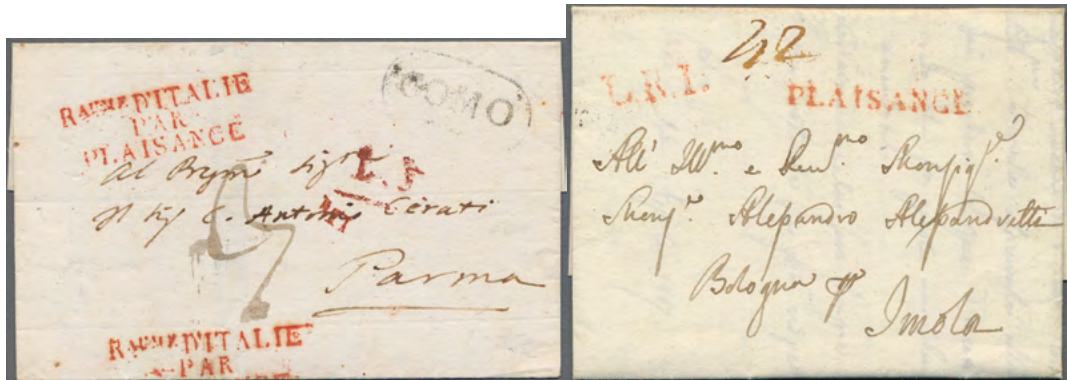 RAUME D'ITALIE
PAR
PLAISANCE
COMO
Al
L. I
Il Sig C. Antonio Cerati
Parma
RAUME D'ITALIE
PAR
42
L.R.I.
PLAISANCE
All' Ill.mo e Rev.mo Monsig.e
Monsg.e Alessandro Alessandretti
Bologna p
Imola